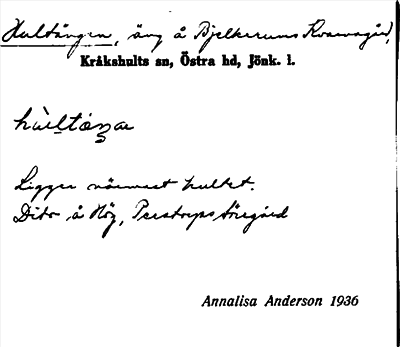 Hultängen, äng å Bjelkerums Kvarnagård,
Kråkshults sn, Östra hd, Jönk. l.
Ligger närmast hultet.
Dito å Hög, Perstorps Storgård
Annalisa Anderson 1936